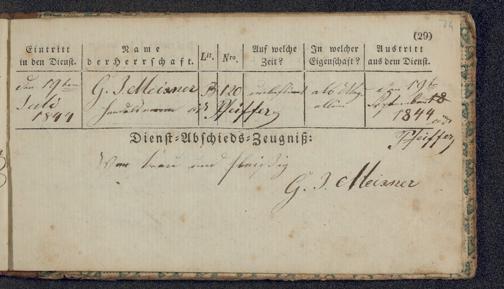 (29)
Eintritt in den Dienst.
Name der Herrschaft.
Lit.
Nro.
Auf welche Zeit?
In welcher Eigenschaft?
Austritt aus dem Dienst.
den 19ten G. J. Meisner B 120 als
Juli Pfeiffer
1841 1844
Pfeiffer
Dienst-Abschieds-Zeugniß:
War treu und fleißig
G. J. Meisner